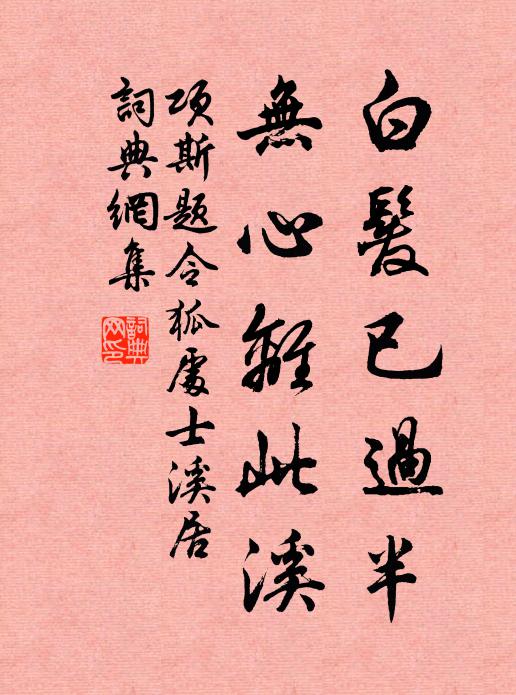 白髮已過半
無心離此溪
項斯題令狐處士溪居
詞典網集
詞典網印